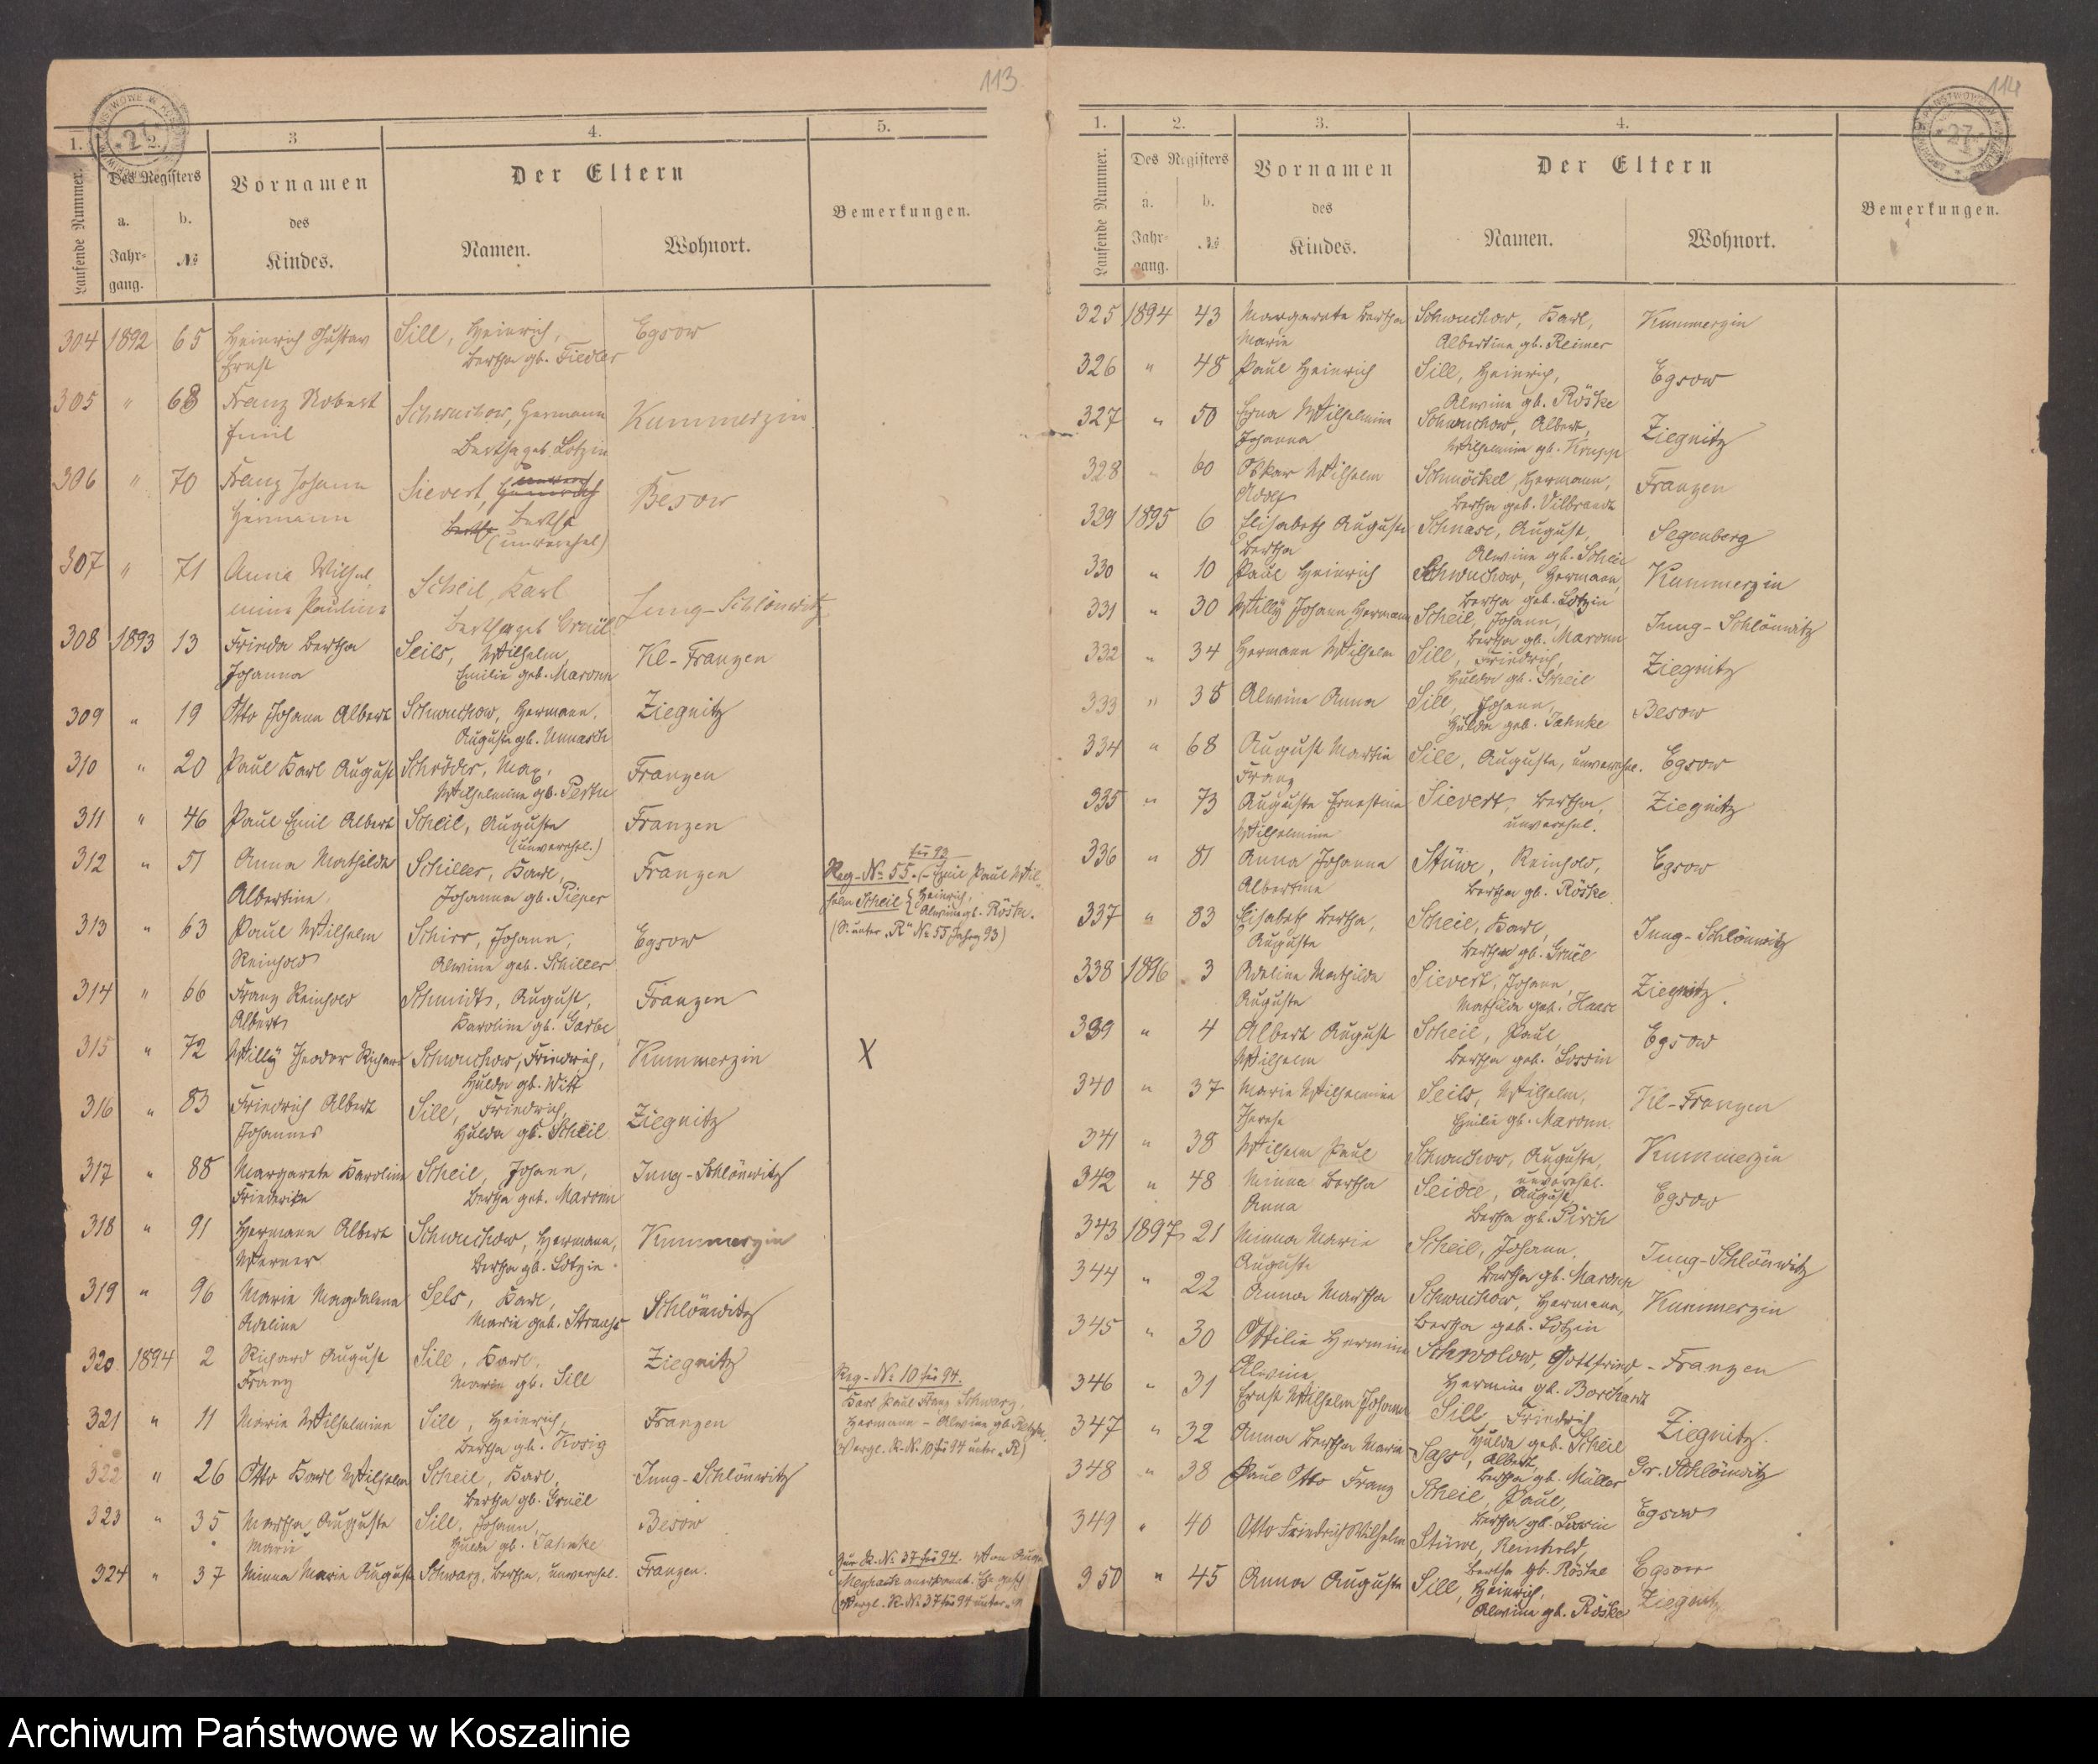 113
1. 2. 3 4. 5.
Laufende Nummer. Des Registers Vornamen des Kindes. Der Eltern Bemerkungen.
a. Jahrgang. b. № Namen. Wohnort.
304 1892 65 Heinrich Gustav Sill, Heinrich, Egsow
Ernst Bertha gb. Fiedler
305 " 68 Franz Robert Schwuchow, Hermann Kummerzin
Emil Bertha geb. Lotzin
306 " 70 Franz Johann Sievert, Besow
Hermann Bertha
(unverehel)
307 " 71 Anna Wilhel Scheil, Karl Jung-Schlönwitz
mine Pauline Bertha geb. Gruël
308 1893 13 Frieda Bertha Seils, Wilhelm, Kl-Franzen
Johanna Emilie geb. Maronn
309 " 19 Otto Johann Albert Schwuchow, Hermann, Ziegnitz
Auguste gb. Unnasch
310 " 20 Paul Karl August Schröder, Max, Franzen
Wilhelmine gb.
311 " 46 Paul Emil Albert Scheil, Auguste Franzen
(unverehel.)
312 " 51 Anna Mathilde Schiller, Karl, Franzen
Albertine Johanna gb. Pieper
für 93
Reg-№ 55. (- Emil Paul Wil-
helm Scheil { Heinrich,
Alwine gb. Röske.
(S. unter „R" № 55 Jahrg 93)
313 " 63 Paul Wilhelm Schirr, Johann, Egsow
Reinhold Alwine geb. Schiller
314 " 66 Franz Reinhold Schmidt, August, Franzen
Albert Karoline gb. Garbe
315 " 72 Willÿ Theodor Richard Schwuchow, Friedrich, Kummerzin X
Hulda gb. Witt
316 " 83 Friedrich Albert Sill, Friedrich, Ziegnitz
Johannes Hulda gb. Scheil
317 " 88 Margarete Karoline Scheil, Johann, Jung-Schlönwitz
Friederike Bertha geb. Maronn
318 " 91 Hermann Albert Schwuchow, Hermann, Kummerzin
Werner Bertha gb. Lotzin
319 " 96 Marie Magdalena Sels, Karl, Schlönwitz
Adeline Marie geb. Strauss
320. 1894 2 Richard August Sill, Karl, Ziegnitz
Franz Marie gb. Sill
321 " 11 Marie Wilhelmine Sill, Heinrich, Franzen
Bertha gb.
Reg-№ 10 für 94.
Karl Paul Franz Schwarz,
Hermann - Alwine gb.
(Vergl. R. №. 10 für 94 unter „R)
322 " 26 Otto Karl Wilhelm Scheil, Karl, Jung-Schlönwitz
Bertha gb. Gruël
323 " 35 Martha Auguste Sill, Johann, Besow
Marie Hulda gb. Jahnke
324 " 37 Minna Marie Auguste Schwarz, Bertha, unverehel. Franzen.
Zur R. №. 37 für 94. Von
(Vergl. R. №. 37 für 94 unter
114
1. 2. 3. 4.
Laufende Nummer. Des Registers Vornamen des Kindes. Der Eltern Bemerkungen.
a. Jahrgang. b. № Namen. Wohnort.
325 1894 43 Margarete Bertha Schwuchow, Karl, Kummerzin
Marie Albertine gb. Reimer
326 " 48 Paul Heinrich Sill, Heinrich, Egsow
Alwine gb. Röske
327 " 50 Erna Wilhelmine Schwuchow, Albert, Ziegnitz
Johanna Wilhelmine gb. Krupp
328 " 60 Oskar Wilhelm Schmöckel, Hermann, Franzen
Adolf Bertha geb. Vilbrandt
329 1895 6 Elisabeth Auguste Schnase, August, Segenberg
Bertha Alwine gb. Scheil
330 " 10 Paul Heinrich Schwuchow, Hermann, Kummerzin
Bertha geb. Lotzin
331 " 30 Willÿ Johann Hermann Scheil, Johann, Jung-Schlönwitz
Bertha gb. Maronn
332 " 34 Hermann Wilhelm Sill, Friedrich, Ziegnitz
Hulda gb. Scheil
333 " 38 Alwine Anna Sill, Johann, Besow
Hulda geb. Jahnke
334 " 68 August Martin Sill, Auguste, unverehel. Egsow
Franz
335 " 73 Auguste Ernestine Sievert, Bertha, Ziegnitz
Wilhelmine unverehel.
336 " 81 Anna Johanna Stüwe, Reinhold, Egsow
Albertine Bertha gb. Röske
337 " 83 Elisabeth Bertha, Scheil, Karl, Jung-Schlönwitz
Auguste Bertha gb. Gruël
338 1896 3 Adeline Mathilde Sievert, Johann, Ziegnitz.
Auguste Mathilde geb. Haase
339 " 4 Albert August Scheil, Paul, Egsow
Wilhelm Bertha geb. Lossin
340 " 37 Marie Wilhelmine Seils, Wilhelm, Kl-Franzen
Therese Emilie gb. Maronn.
341 " 38 Wilhelm Paul Schwuchow, Auguste, Kummerzin
unverehel.
342 " 48 Minna Bertha Seidel, August, Egsow
Anna Bertha gb. Pirch
343 1897 21 Minna Marie Scheil, Johann, Jung-Schlönwitz
Auguste Bertha gb. Maronn
344 " 22 Anna Martha Schwuchow, Hermann, Kummerzin
Bertha geb. Lotzin
345 " 30 Ottilie Hermine Schwolow, Gottfried, - Franzen
Alwine Hermine gb. Borchardt
346 " 31 Ernst Wilhelm Johannes Sill, Friedrich, Ziegnitz.
Hulda geb. Scheil
347 " 32 Anna Bertha Marie Sass, Albert, Gr. Schlönwitz
Bertha gb. Müller
348 " 38 Paul Otto Franz Scheil, Paul, Egsow
Bertha gb. Lossin
349 " 40 Otto Friedrich Wilhelm Stüwe, Reinhold, Egsow
Bertha gb. Röske
350 " 45 Anna Auguste Sill, Heinrich, Ziegnitz
Alwine gb. Röske
Archiwum Państwowe w Koszalinie